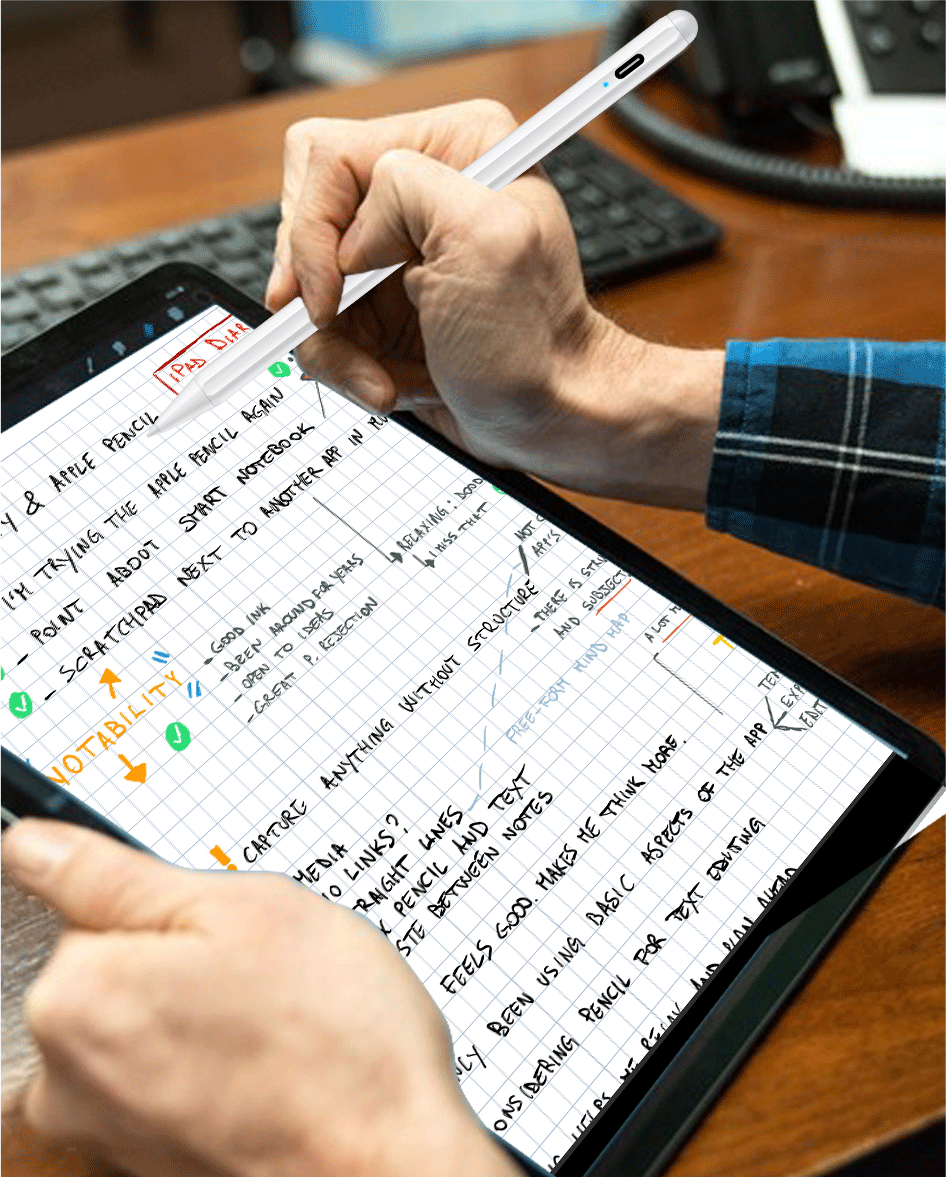 iPAD DIAR
Y & APPLE PENCIL
I'M TRYING THE APPLE PENCIL AGAIN
- POINT ABOUT SMART NOTEBOOK
- SCRATCHPAD NEXT TO ANOTHER APP IN
RELAXING: DOOD
I MISS THAT
NOTABILITY
• GOOD INK
- BEEN AROUND FOR YEARS
- OPEN TO IDEAS
- GREAT P. REJECTION
NOT
APP'S
- THERE IS STR
AND SUBJECT
A LOT
FREE-FORM MIND MAP
TE
EXP
ENT
! CAPTURE ANYTHING WITHOUT STRUCTURE
MEDIA
O LINKS?
RAIGHT LINES
PENCIL AND TEXT
STE BETWEEN NOTES
FEELS GOOD. MAKES ME THINK MORE.
LY BEEN USING BASIC ASPECTS OF THE APP
ONSIDERING PENCIL FOR TEXT EDITING
HELPS ME RELAX AND PLAN AHEAD